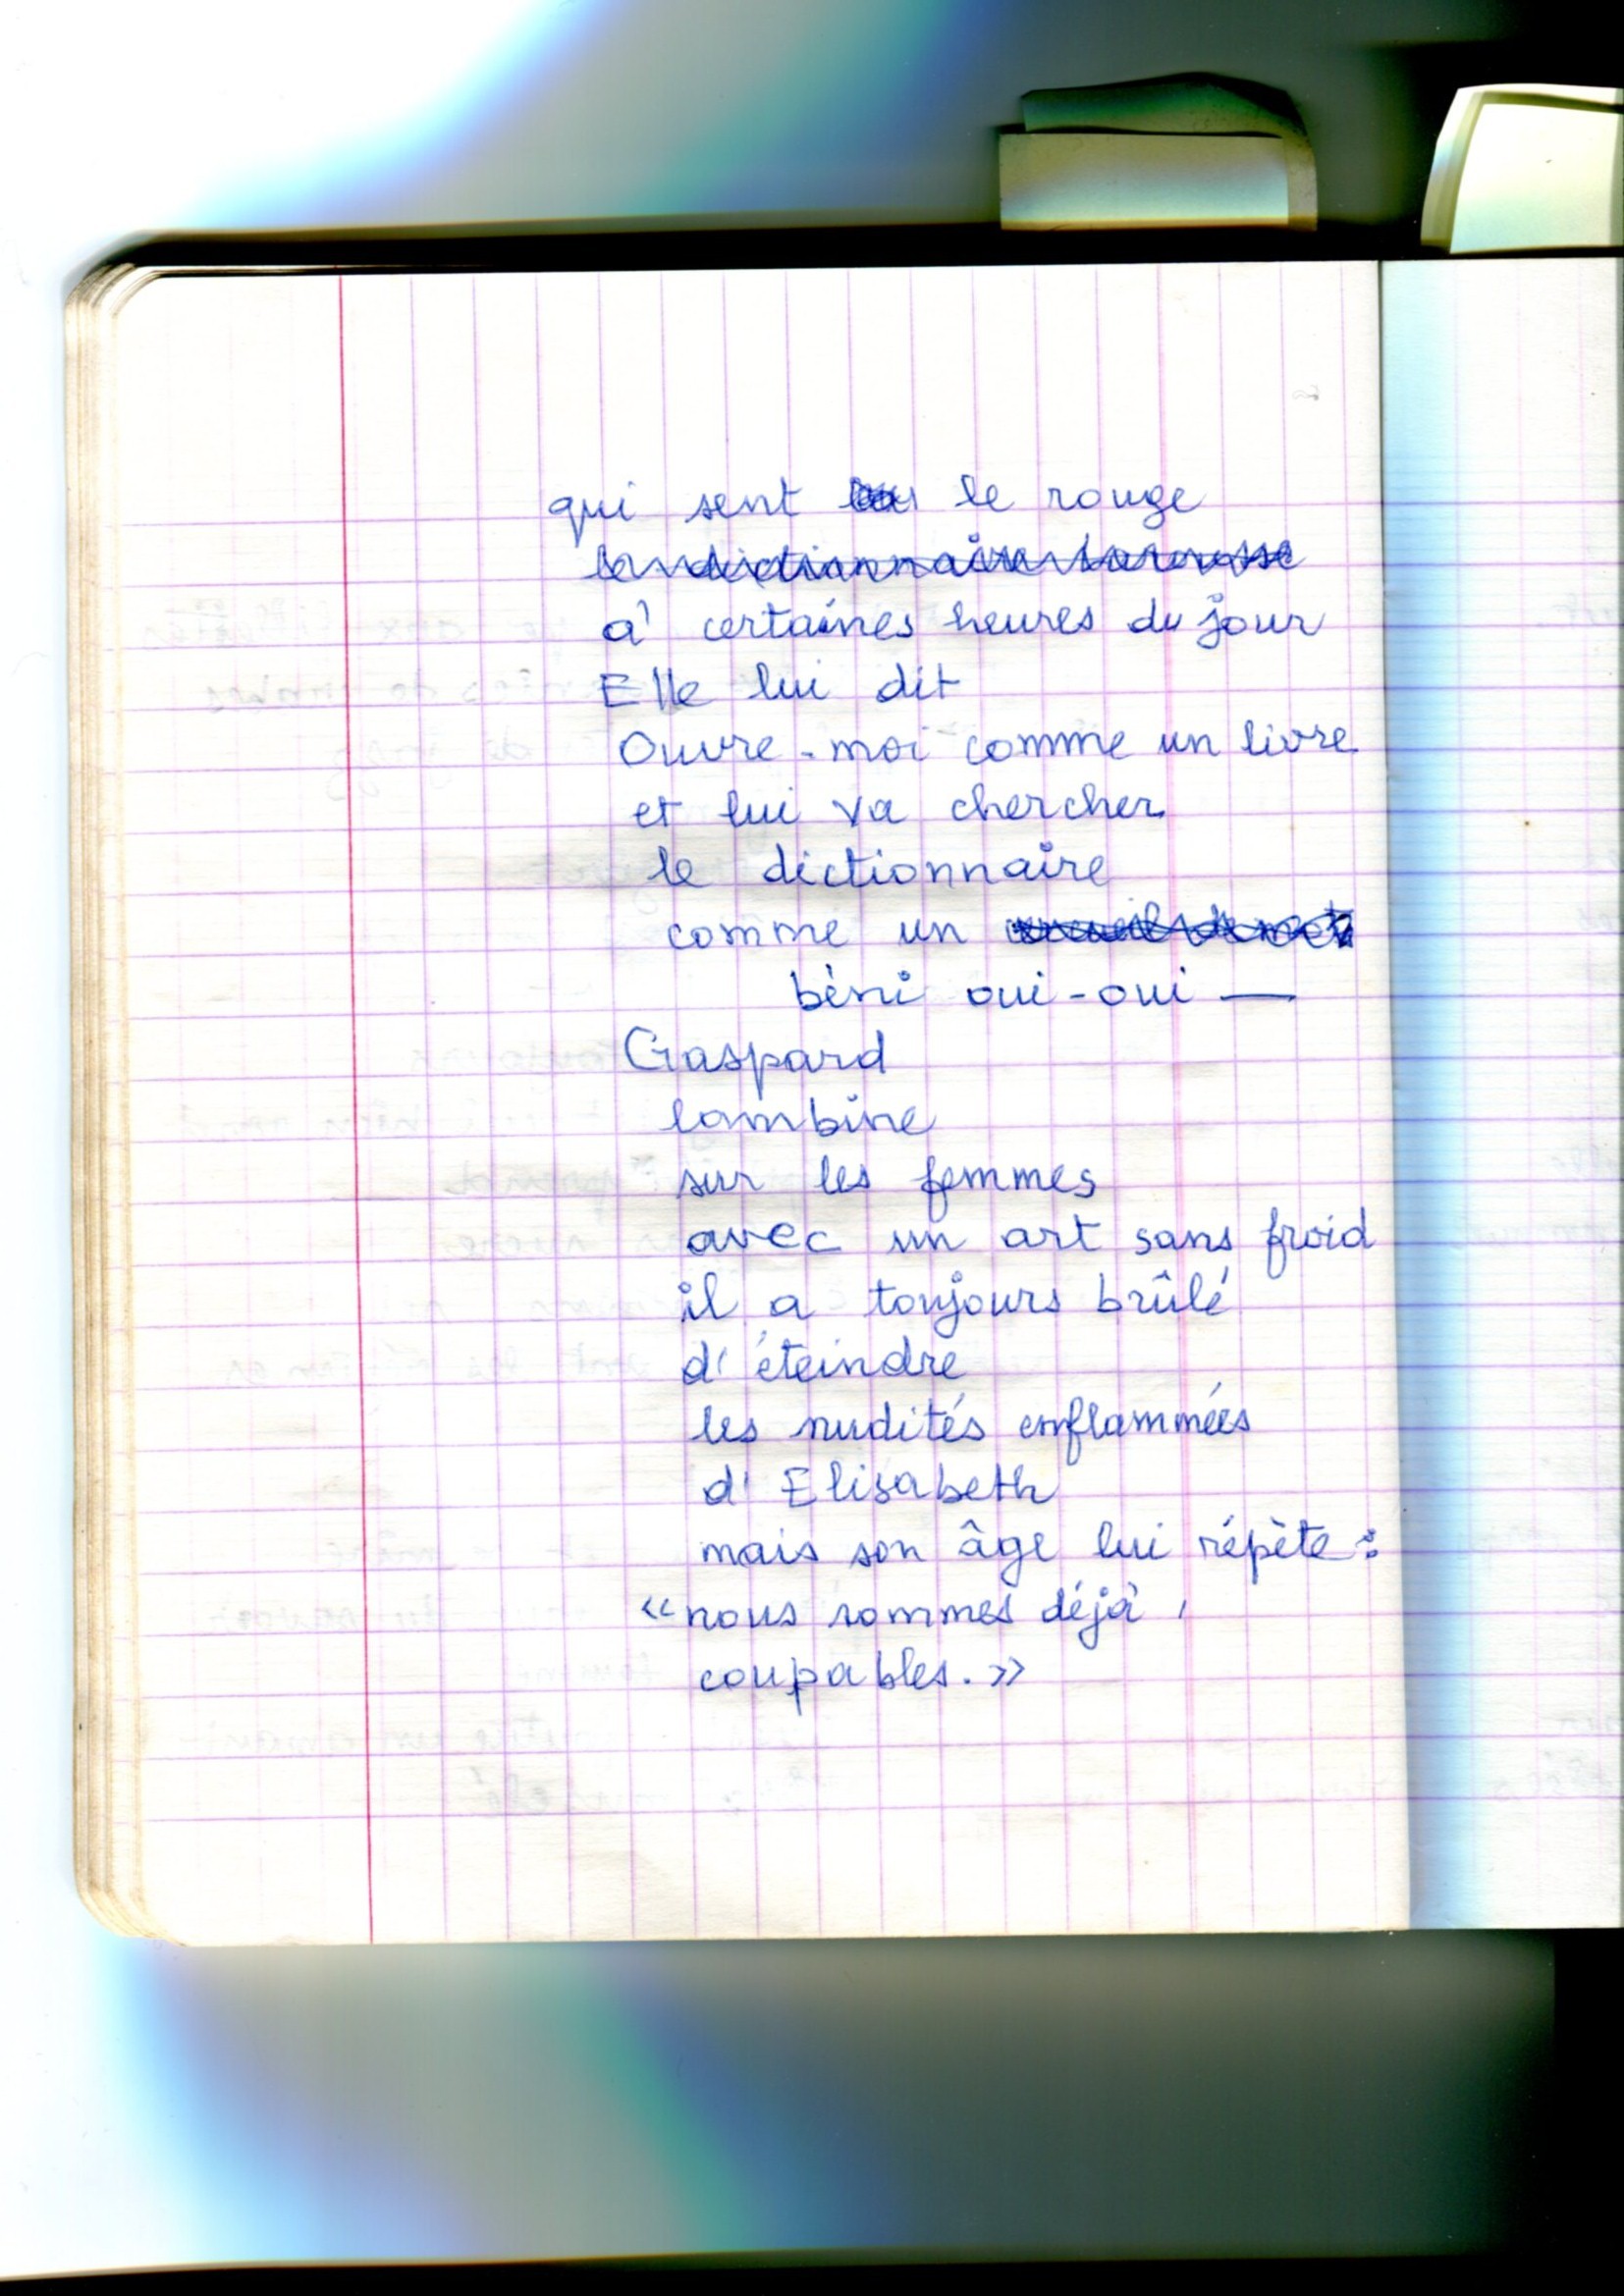 qui sent le rouge
le dictionnaire larousse
à certaines heures du jour
Elle lui dit
Ouvre-moi comme un livre
et lui va chercher
le dictionnaire
comme un
bèni oui-oui —
Gaspard
lambine
sur les femmes
avec un art sans froid
il a toujours brûlé
d'éteindre
les nudités enflammées
d'Elisabeth
mais son âge lui répète :
«nous sommes déjà,
coupables.»